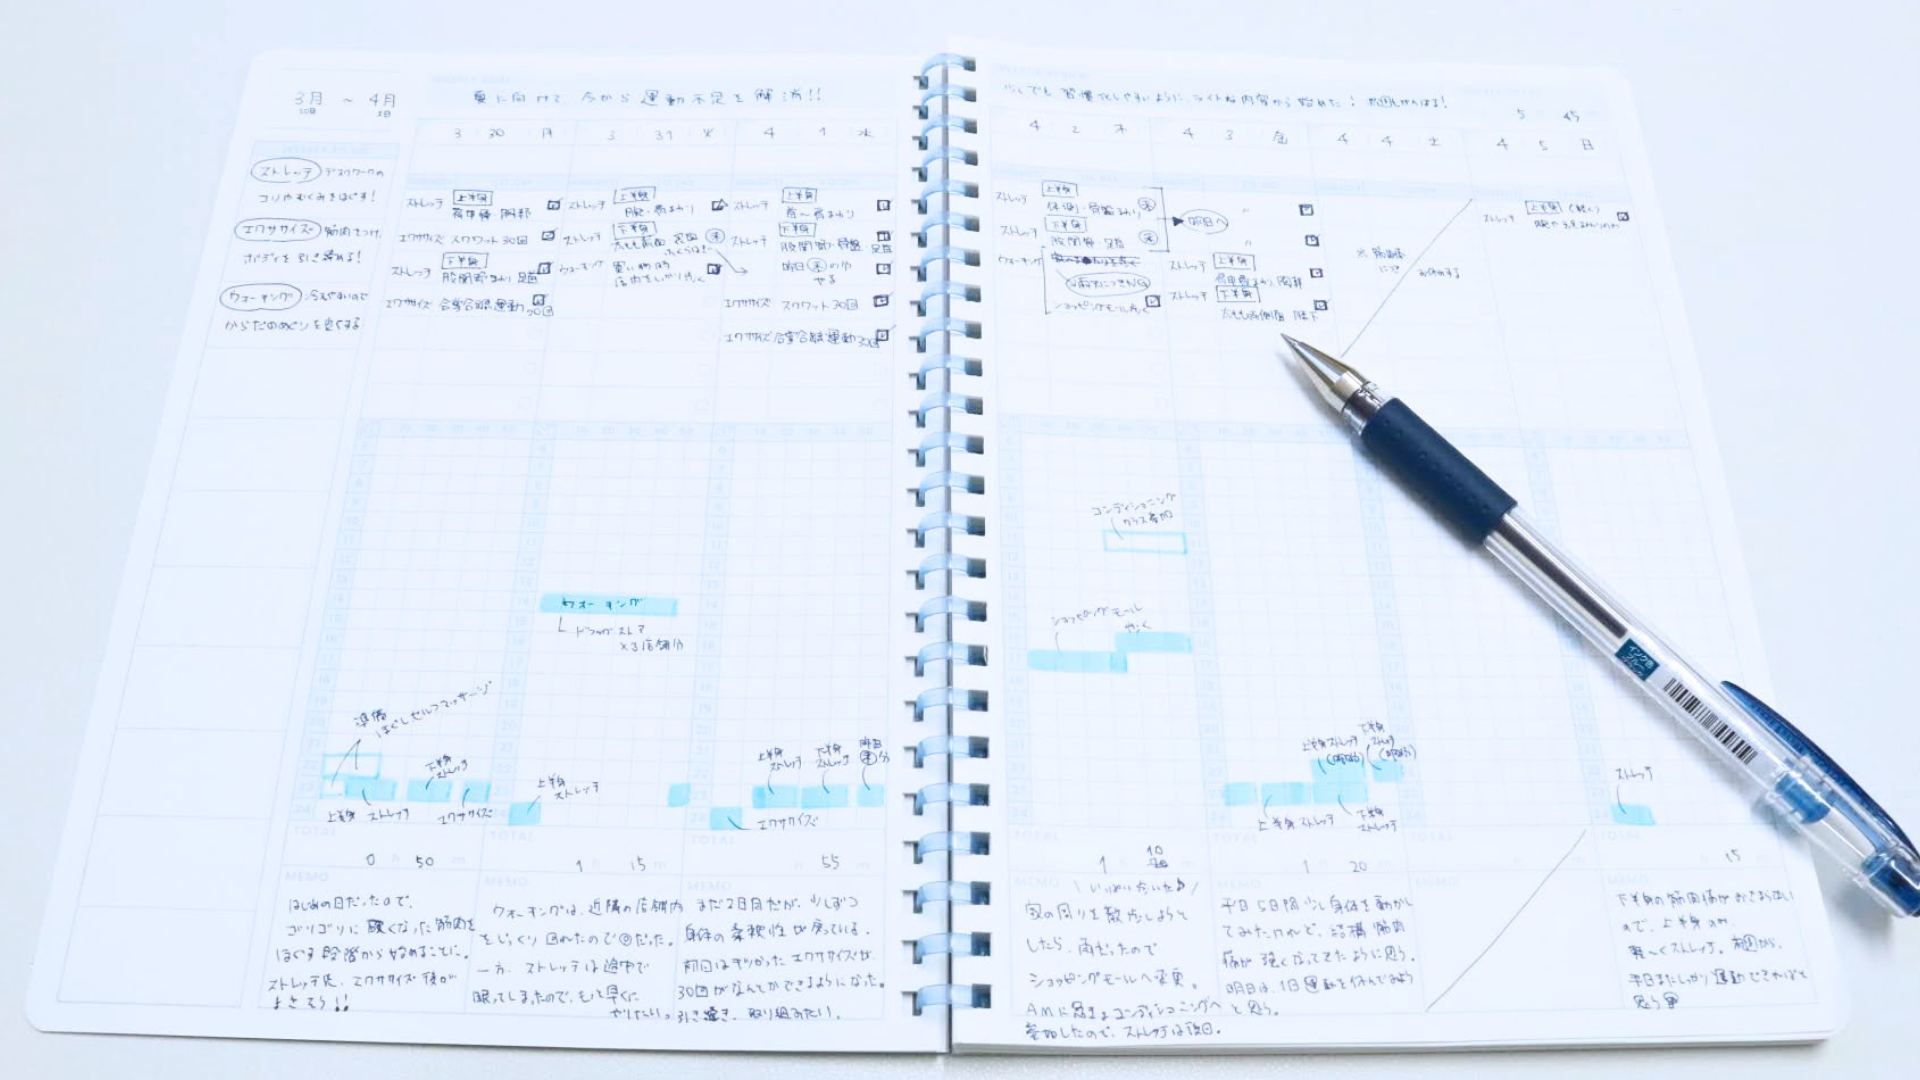 3月 ～ 4月
30日 5日
夏に向けて、今から運動不足を解消!!
3 30 月 3 31 火 4 1 水
ストレッチ デスクワークの
コリやむくみをほぐす!
エクササイズ 筋肉をつけ、
ボディを引き締める!
ウォーキング
からだのめぐりを良くする
ストレッチ 上半身
肩甲骨・胸部
エクササイズ スクワット30回
ストレッチ 下半身
股関節まわり 足首
エクササイズ 合掌合蹠運動 30回
ストレッチ 上半身
腕・肩まわり
ストレッチ 下半身
太もも前面・裏面
ウォーキング 買い物時
ストレッチ 上半身
首〜肩まわり
ストレッチ 下半身
股関節・骨盤 足首
昨日の分
やる
エクササイズ スクワット30回
エクササイズ 合掌合蹠運動30回
ウォーキング
ドラッグストア
×3店舗分
準備
ほぐしセルフマッサージ
上半身 ストレッチ
下半身
ストレッチ
エクササイズ
上半身
ストレッチ
エクササイズ
上半身
ストレッチ
下半身
ストレッチ
昨日
分
TOTAL TOTAL TOTAL
0 h 50 m 1 h 15 m h 55 m
MEMO MEMO MEMO
はじめの日だったので、
ゴリゴリに硬くなった筋肉を
ほぐす段階から始めることに。
ストレッチ後、エクササイズ後が
よさそう!!
ウォーキングは、近隣の店舗内
をじっくり回れたので◎だった。
一方、ストレッチは途中で
眠ってしまったので、もっと早くに
やりたい。
まだ3日目だが、少しずつ
身体の柔軟性が戻っている。
前回はキツかったエクササイズが
30回がなんとかできるようになった。
引き続き、取り組みたい。
少しでも習慣化しやすいように、ライトな内容から始めた!
5 45
4 2 木 4 3 金 4 4 土 4 5 日
ストレッチ 上半身
体側・骨盤まわり
ストレッチ 下半身
股関節・足首
明日へ
ウォーキング
雨天につきNG
ショッピングモール歩く
ストレッチ 上半身
肩甲骨まわり 胸部
ストレッチ 下半身
太もも内側面 膝下
※ 筋肉痛
にて
お休みする
ストレッチ 上半身 (軽く)
コンディショニング
クラス参加
ショッピングモール
歩く
上半身ストレッチ
(昨日分)
下半身
ストレッチ
(昨日分)
上半身ストレッチ
下半身
ストレッチ
ストレッチ
インク色
ブルー
TOTAL TOTAL TOTAL TOTAL
1 h 10 m 1 h 20 m 15
MEMO MEMO MEMO
いっぱい歩いた
家の周りを散歩しようと
したら、雨だったので
ショッピングモールへ変更。
AMに
参加したので、ストレッチは後日。
平日5日間少し身体を動かし
てみたけれど、結構筋肉
痛が強くなってきたように思う。
明日は、1日運動を休んでみよう
と思う。
下半身の筋肉痛がおさまらない
ので、上半身のみ
軽〜くストレッチ。
平日またしっかり運動できればと
思う